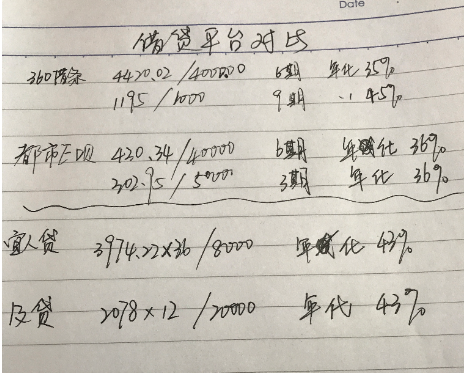 Date
借贷平台对比
360借条 4420.02/40000 6期 年化 35%
1195/1000 9期 .. 45%
都市E贝 430.34/40000 6期 年化 36%
302.95/50000 3期 年化 36%
宜人贷 3974.22×36/80000 年化 43%
及贷 2078×12/20000 年化 43%